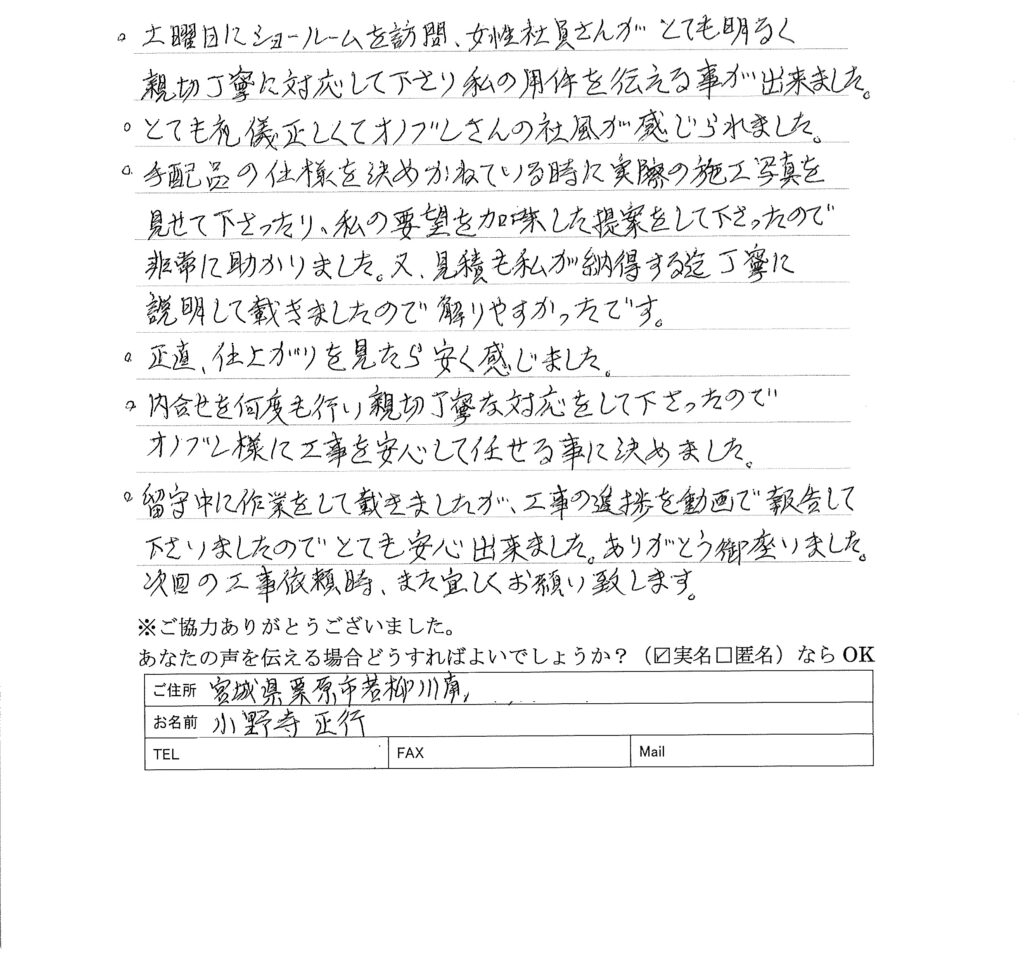 ○ 土曜日にショールームを訪問、女性社員さんがとても明るく
親切丁寧に対応して下さり私の用件を伝える事が出来ました。
○ とても礼儀正しくてオノブレさんの社風が感じられました。
○ 手配品の仕様を決めかねている時に実際の施工写真を
見せて下さったり、私の要望を加味した提案をして下さったので
非常に助かりました。又、見積も私が納得する迄丁寧に
説明して戴きましたので解りやすかったです。
○ 正直、仕上がりを見たら安く感じました。
○ 内合せを何度も行い親切丁寧な対応をして下さったので
オノブレ様に工事を安心して任せる事に決めました。
○ 留守中に作業をして戴きましたが、工事の進捗を動画で報告して
下さいましたのでとても安心出来ました。ありがとう御座いました。
次回の工事依頼時、また宜しくお願い致します。
※ご協力ありがとうございました。
あなたの声を伝える場合どうすればよいでしょうか？（☑実名□匿名）なら OK
ご住所 宮城県栗原市若柳川南
お名前 小野寺 正行
TEL FAX Mail